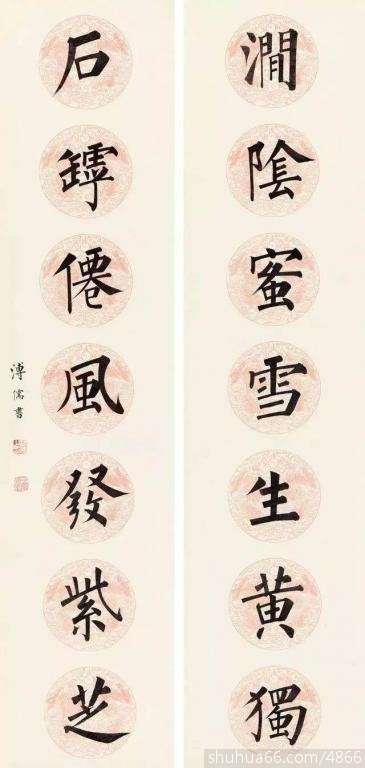 澗陰蜜雪生黄獨
石罅僊風發紫芝
溥儒書
shuhua66.com/4866